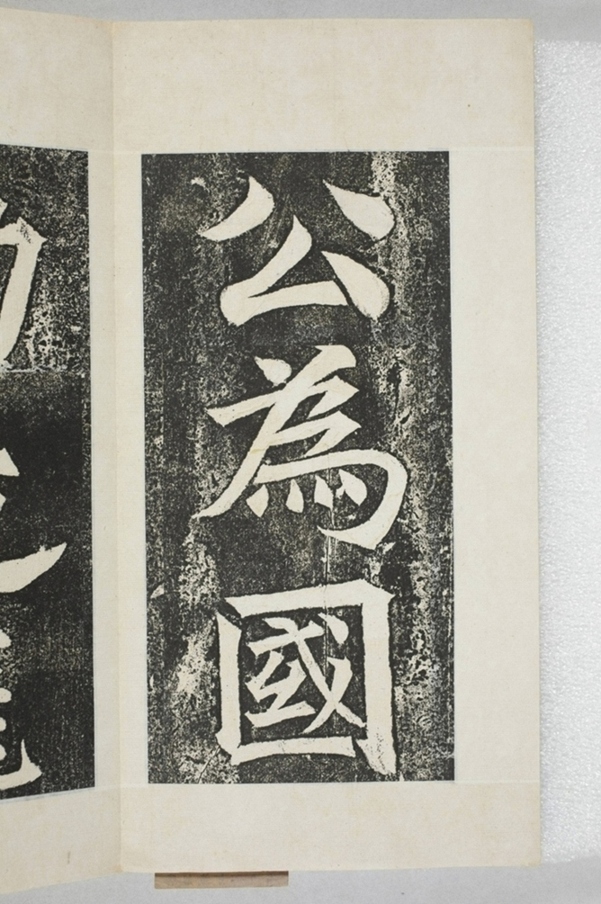 公為國